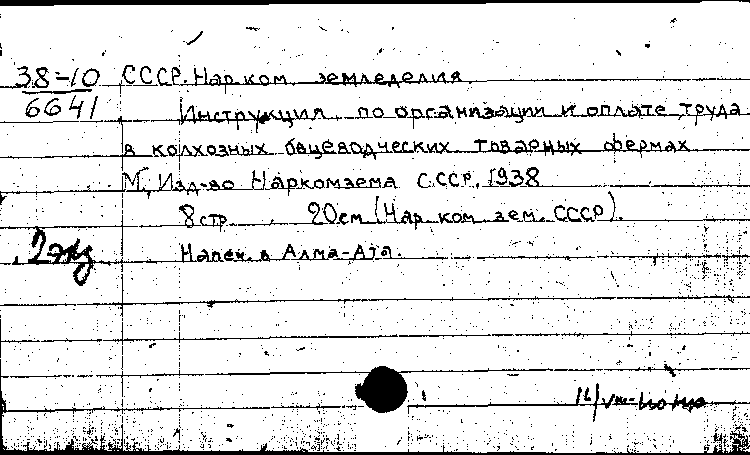 38-10 СССР. Нар.ком. земледелия.
6641 Инструкция по организации и оплате труда
в колхозных овцеводческих товарных фермах
М., Изд-во Наркомзема СССР, 1938
8 стр. 20 см (Нар. ком. зем. СССР).
2 экз Напеч. в Алма-Ата.